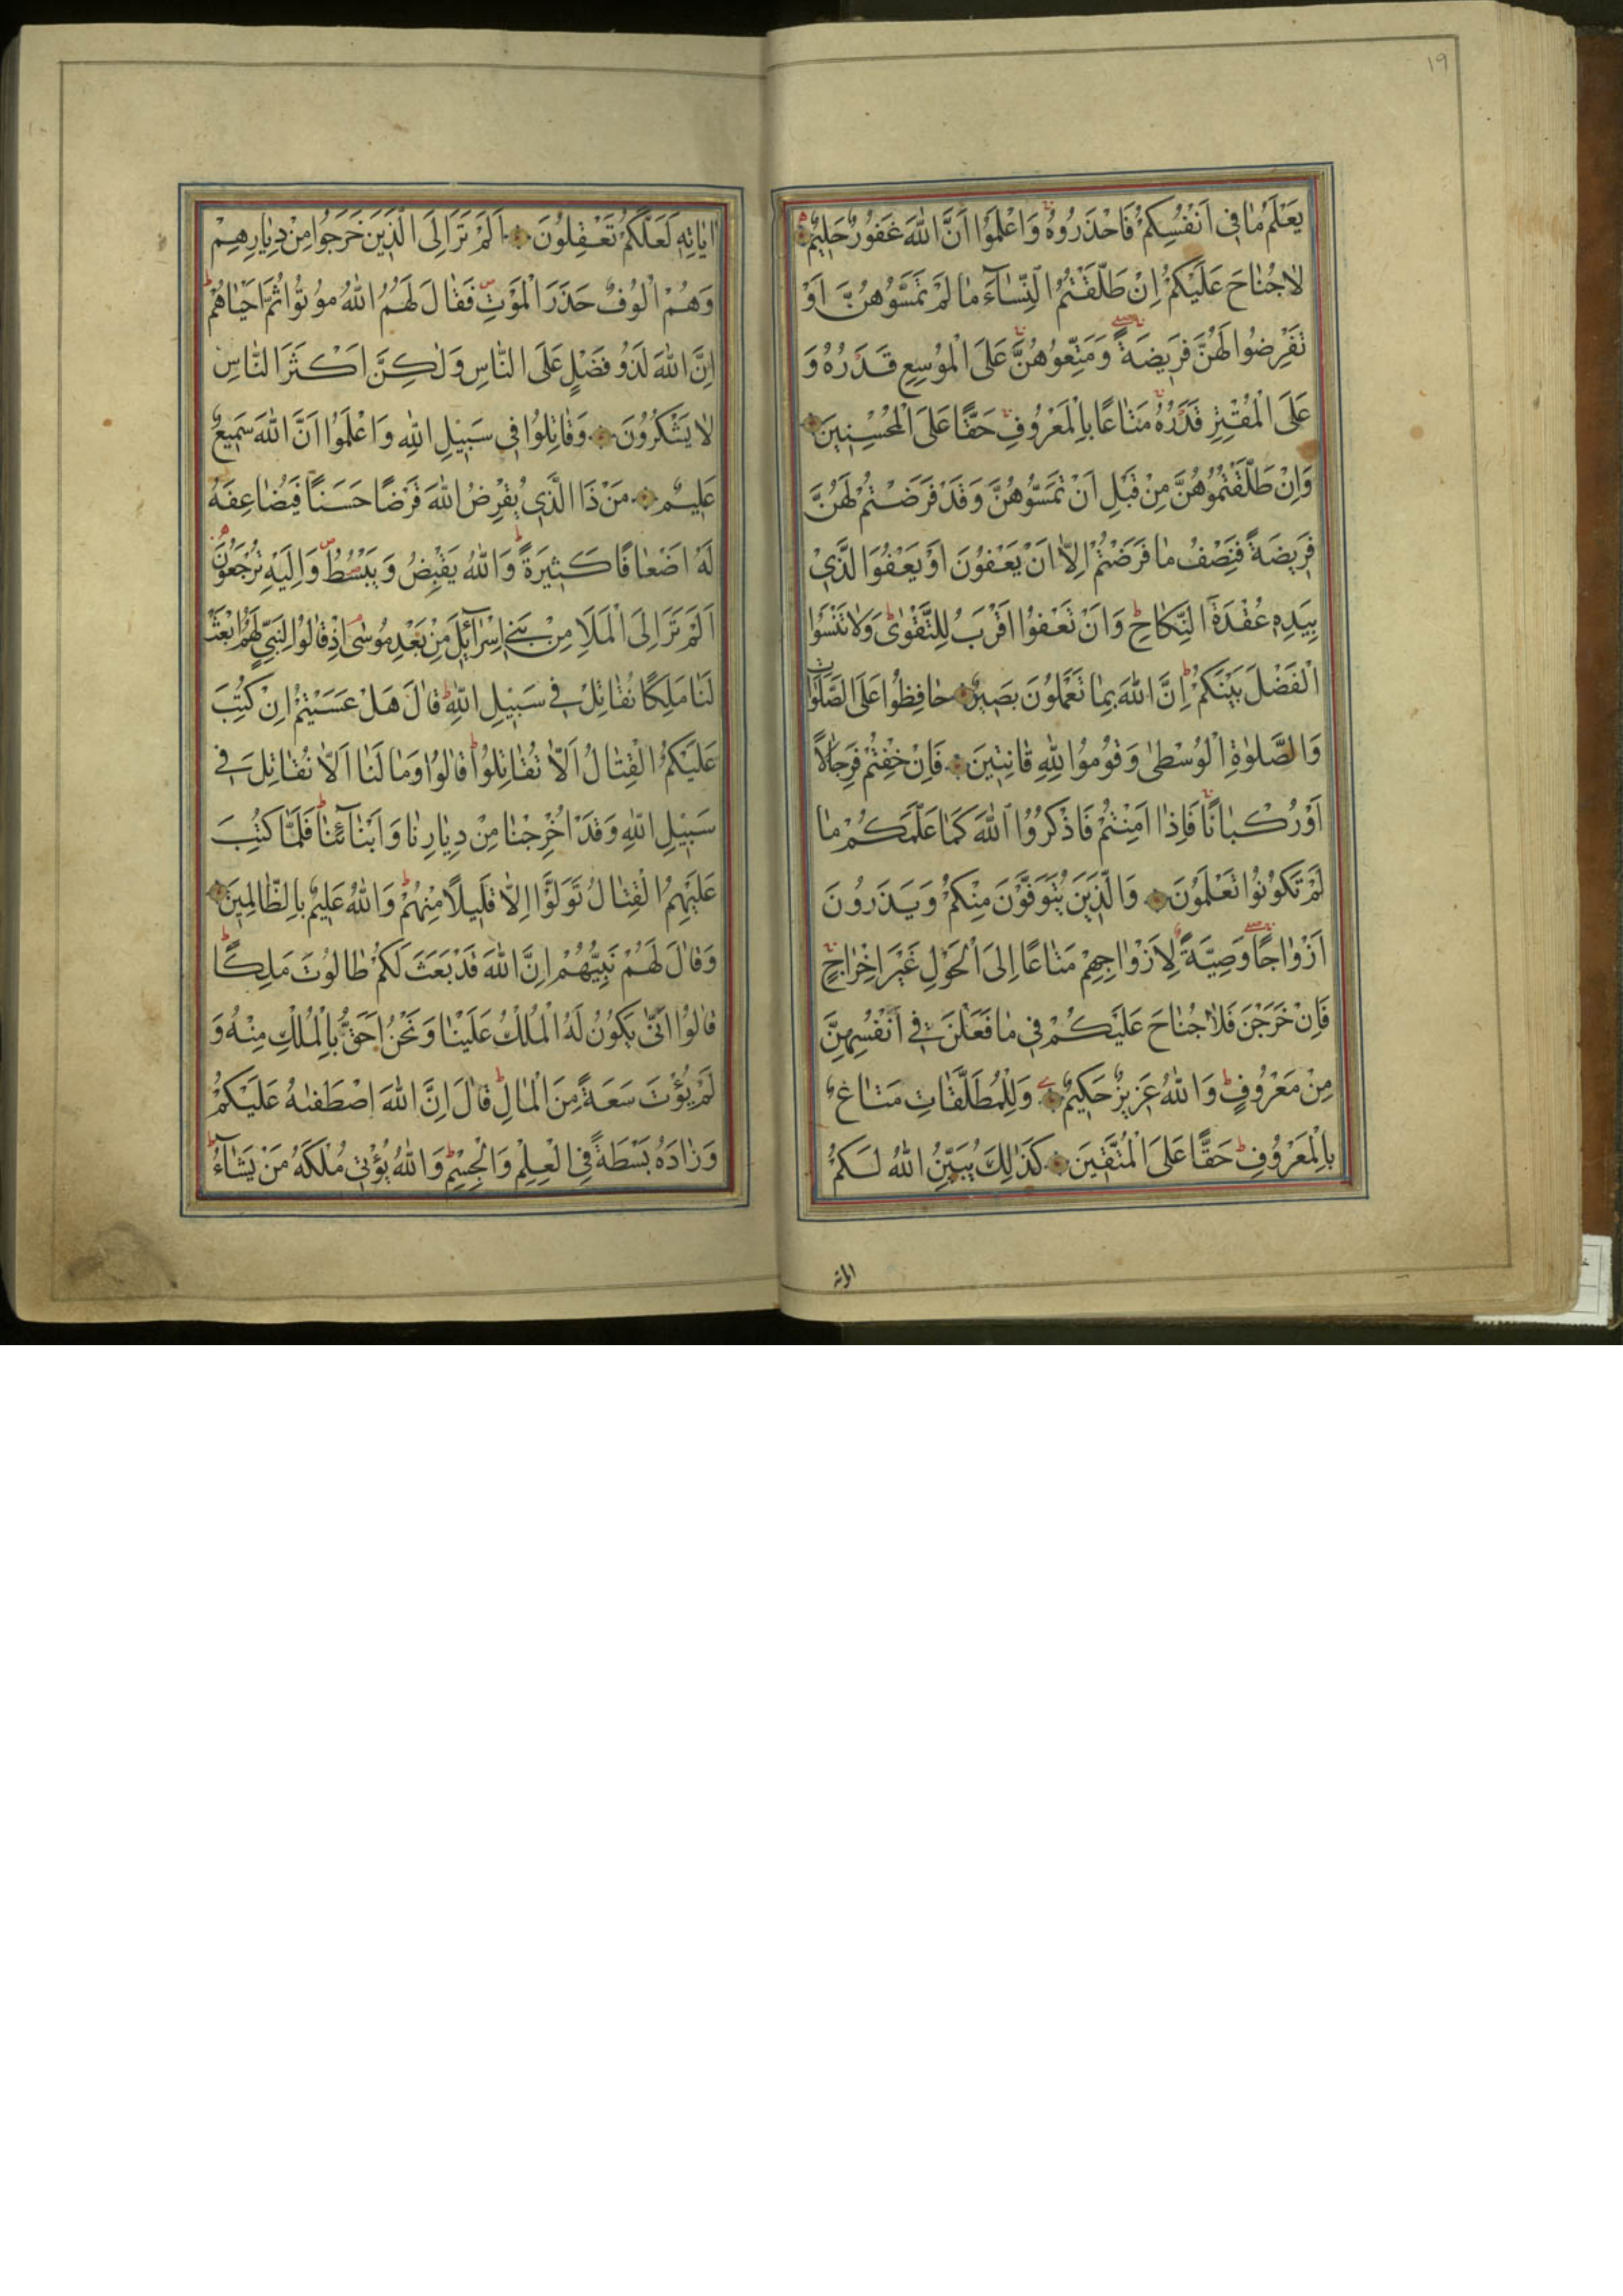 ١٩
يَعْلَمُ مٰا فِي اَنْفُسِكُمْ فَاحْذَرُوهُ وَاعْلَمُوا اَنَّ اللّٰهَ غَفُورٌ حَلِيمٌ
لٰا جُنٰاحَ عَلَيْكُمْ اِنْ طَلَّقْتُمُ النِّسٰآءَ مٰا لَمْ تَمَسُّوهُنَّ اَوْ
تَفْرِضُوا لَهُنَّ فَرِيضَةً وَمَتِّعُوهُنَّ عَلَى الْمُوسِعِ قَدَرُهُ وَ
عَلَى الْمُقْتِرِ قَدَرُهُ مَتٰاعًا بِالْمَعْرُوفِ حَقًّا عَلَى الْمُحْسِنِينَ
وَاِنْ طَلَّقْتُمُوهُنَّ مِنْ قَبْلِ اَنْ تَمَسُّوهُنَّ وَقَدْ فَرَضْتُمْ لَهُنَّ
فَرِيضَةً فَنِصْفُ مٰا فَرَضْتُمْ اِلّٰا اَنْ يَعْفُونَ اَوْ يَعْفُوَا الَّذِي
بِيَدِهِ عُقْدَةُ النِّكٰاحِ وَاَنْ تَعْفُوا اَقْرَبُ لِلتَّقْوٰى وَلٰا تَنْسَوُا
الْفَضْلَ بَيْنَكُمْ اِنَّ اللّٰهَ بِمٰا تَعْمَلُونَ بَصِيرٌ حٰافِظُوا عَلَى الصَّلَوٰاتِ
وَالصَّلٰوةِ الْوُسْطٰى وَقُومُوا لِلّٰهِ قٰانِتِينَ فَاِنْ خِفْتُمْ فَرِجٰالًا
اَوْ رُكْبٰانًا فَاِذٰا اَمِنْتُمْ فَاذْكُرُوا اللّٰهَ كَمٰا عَلَّمَكُمْ مٰا
لَمْ تَكُونُوا تَعْلَمُونَ وَالَّذِينَ يُتَوَفَّوْنَ مِنْكُمْ وَيَذَرُونَ
اَزْوٰاجًا وَصِيَّةً لِاَزْوٰاجِهِمْ مَتٰاعًا اِلَى الْحَوْلِ غَيْرَ اِخْرٰاجٍ
فَاِنْ خَرَجْنَ فَلٰا جُنٰاحَ عَلَيْكُمْ فِي مٰا فَعَلْنَ فِي اَنْفُسِهِنَّ
مِنْ مَعْرُوفٍ وَاللّٰهُ عَزِيزٌ حَكِيمٌ وَلِلْمُطَلَّقٰاتِ مَتٰاعٌ
بِالْمَعْرُوفِ حَقًّا عَلَى الْمُتَّقِينَ كَذٰلِكَ يُبَيِّنُ اللّٰهُ لَكُمْ
اٰيٰاتِهِ لَعَلَّكُمْ تَعْقِلُونَ اَلَمْ تَرَ اِلَى الَّذِينَ خَرَجُوا مِنْ دِيٰارِهِمْ
وَهُمْ اُلُوفٌ حَذَرَ الْمَوْتِ فَقٰالَ لَهُمُ اللّٰهُ مُوتُوا ثُمَّ اَحْيٰاهُمْ
اِنَّ اللّٰهَ لَذُو فَضْلٍ عَلَى النّٰاسِ وَلٰكِنَّ اَكْثَرَ النّٰاسِ
لٰا يَشْكُرُونَ وَقٰاتِلُوا فِي سَبِيلِ اللّٰهِ وَاعْلَمُوا اَنَّ اللّٰهَ سَمِيعٌ
عَلِيمٌ مَنْ ذَا الَّذِي يُقْرِضُ اللّٰهَ قَرْضًا حَسَنًا فَيُضٰاعِفَهُ
لَهُ اَضْعٰافًا كَثِيرَةً وَاللّٰهُ يَقْبِضُ وَيَبْسُطُ وَاِلَيْهِ تُرْجَعُونَ
اَلَمْ تَرَ اِلَى الْمَلَاِ مِنْ بَنِي اِسْرٰآئِلَ مِنْ بَعْدِ مُوسٰى اِذْ قٰالُوا لِنَبِيٍّ لَهُمُ ابْعَثْ
لَنٰا مَلِكًا نُقٰاتِلْ فِي سَبِيلِ اللّٰهِ قٰالَ هَلْ عَسَيْتُمْ اِنْ كُتِبَ
عَلَيْكُمُ الْقِتٰالُ اَلّٰا تُقٰاتِلُوا قٰالُوا وَمٰا لَنٰا اَلّٰا نُقٰاتِلَ فِي
سَبِيلِ اللّٰهِ وَقَدْ اُخْرِجْنٰا مِنْ دِيٰارِنٰا وَاَبْنٰآئِنٰا فَلَمّٰا كُتِبَ
عَلَيْهِمُ الْقِتٰالُ تَوَلَّوْا اِلّٰا قَلِيلًا مِنْهُمْ وَاللّٰهُ عَلِيمٌ بِالظّٰالِمِينَ
وَقٰالَ لَهُمْ نَبِيُّهُمْ اِنَّ اللّٰهَ قَدْ بَعَثَ لَكُمْ طٰالُوتَ مَلِكًا
قٰالُوا اَنّٰى يَكُونُ لَهُ الْمُلْكُ عَلَيْنٰا وَنَحْنُ اَحَقُّ بِالْمُلْكِ مِنْهُ وَ
لَمْ يُؤْتَ سَعَةً مِنَ الْمٰالِ قٰالَ اِنَّ اللّٰهَ اصْطَفٰىهُ عَلَيْكُمْ
وَزٰادَهُ بَسْطَةً فِي الْعِلْمِ وَالْجِسْمِ وَاللّٰهُ يُؤْتِي مُلْكَهُ مَنْ يَشٰآءُ